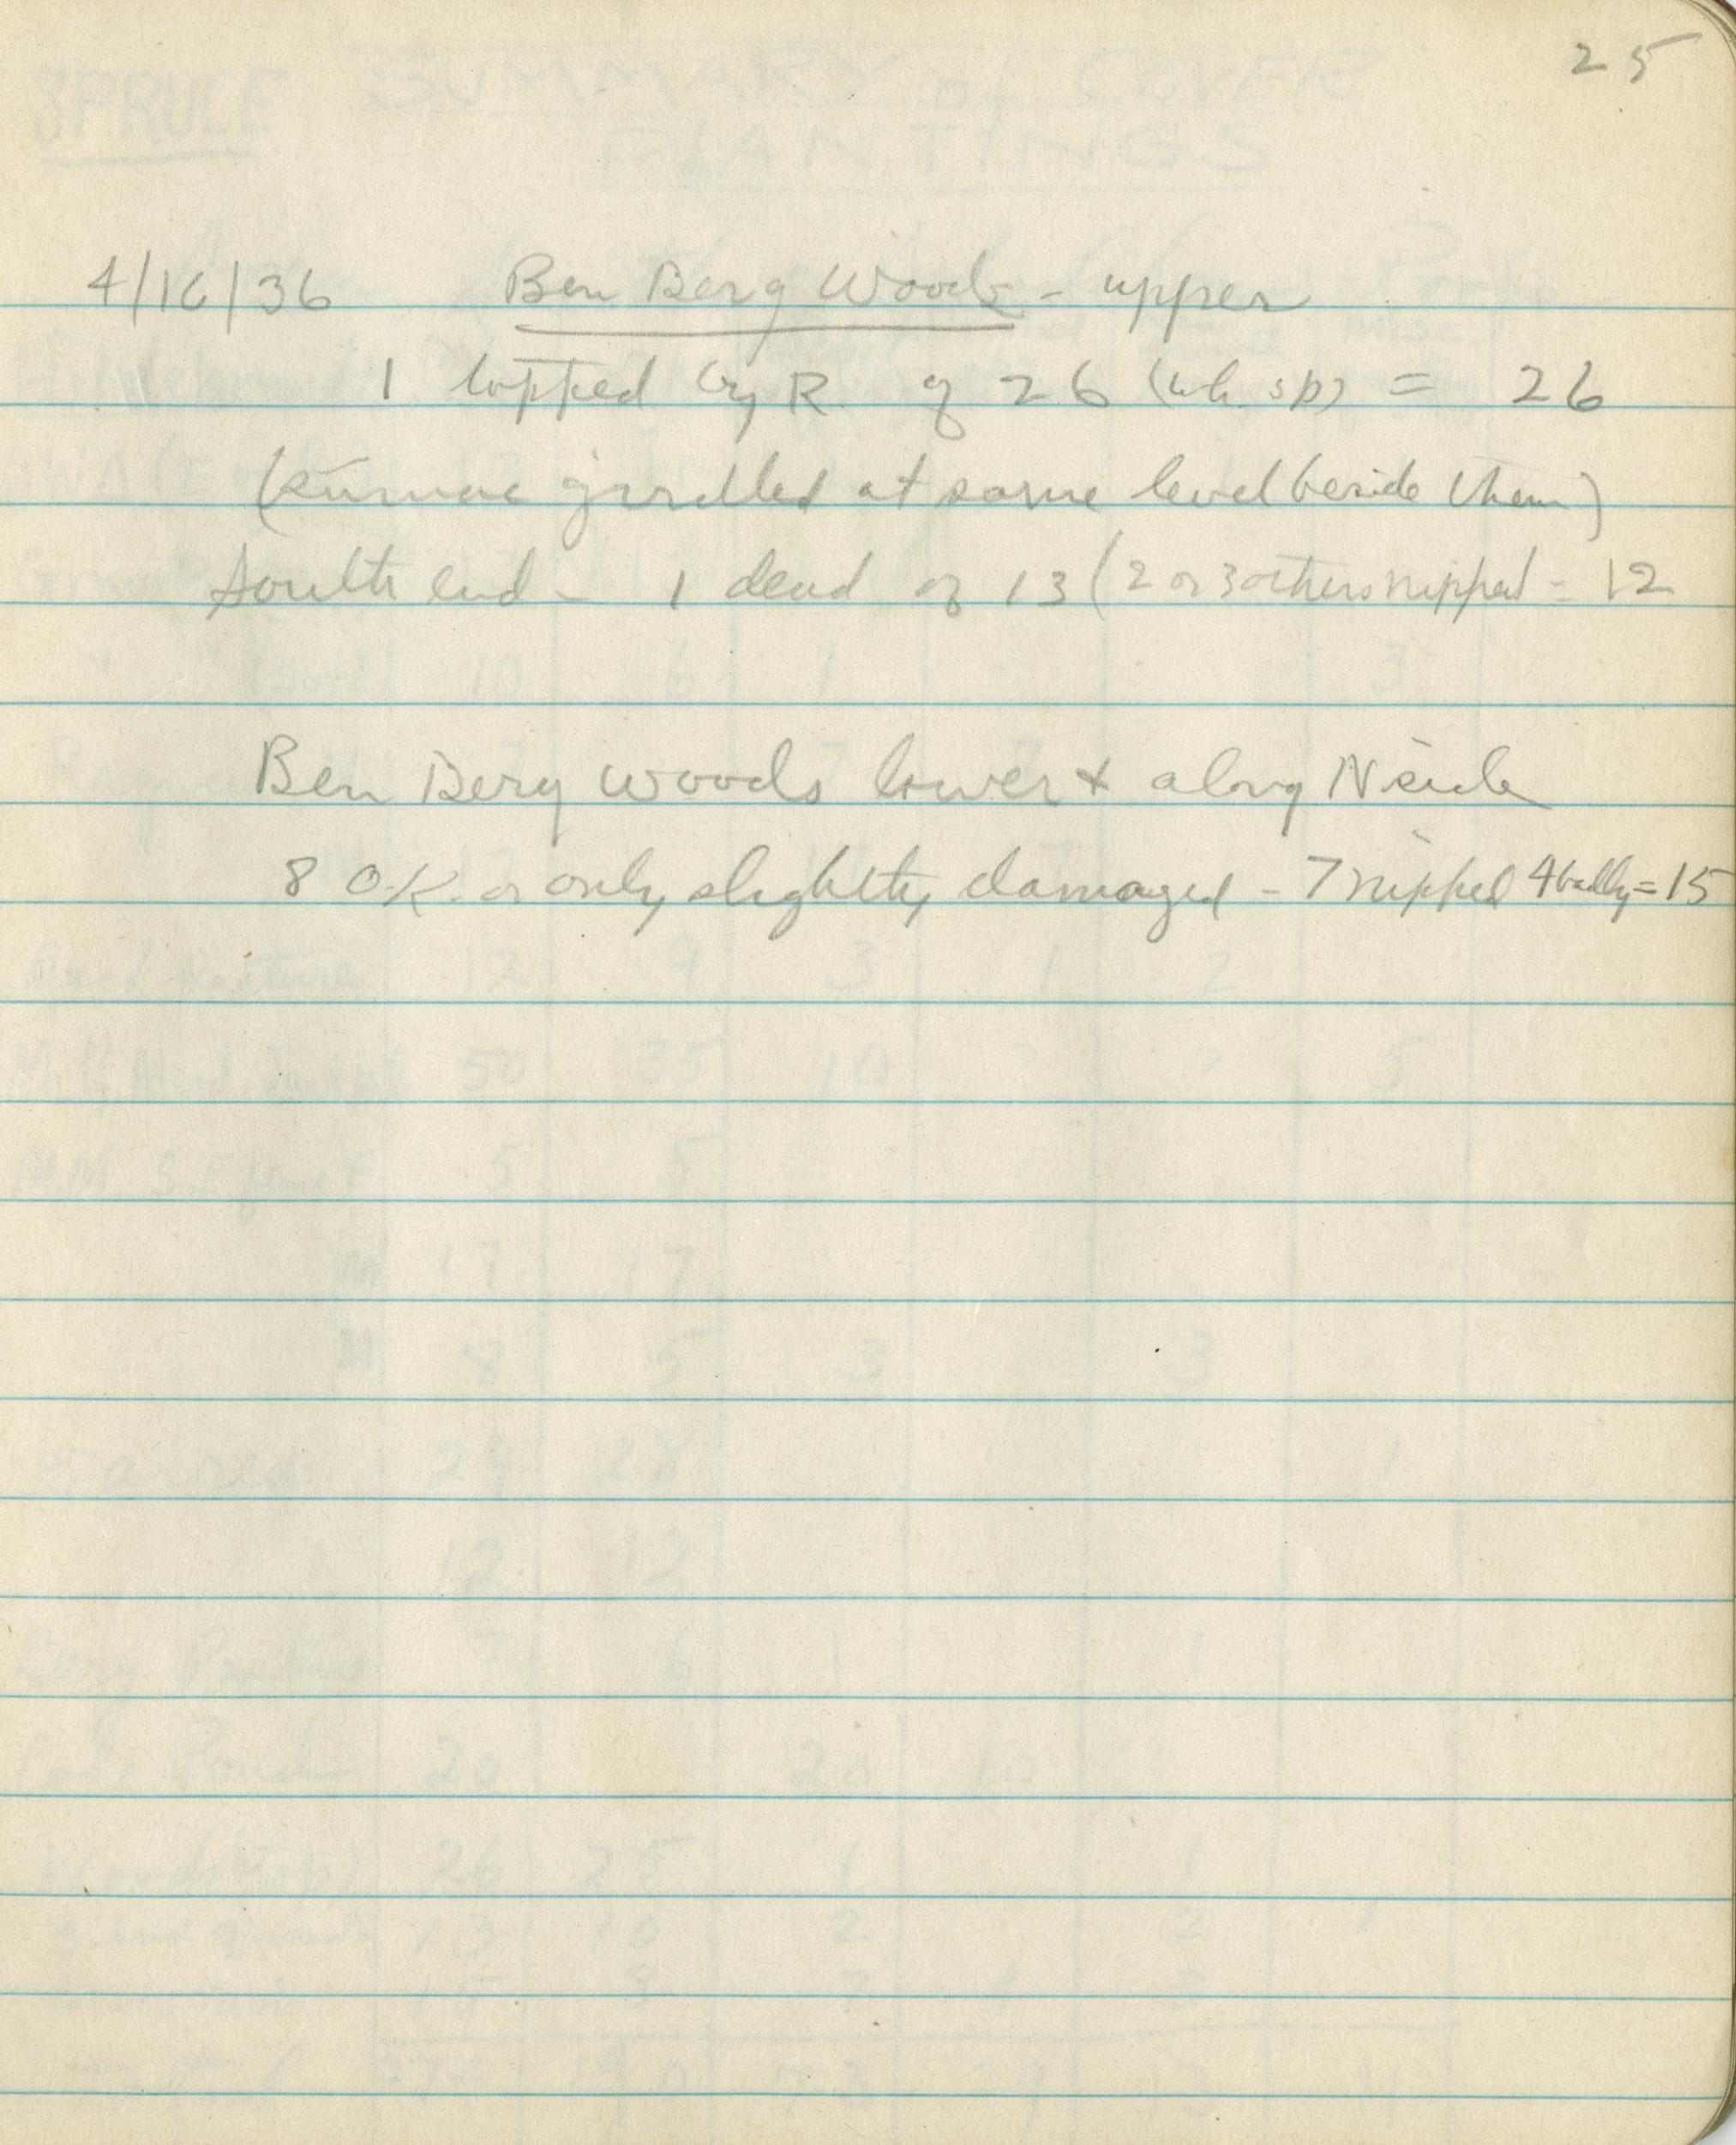 25
4/16/36 Ben Berg Woods - upper
1 lopped by R. of 26 (wh. sp) = 26
(Sumac girdled at same level beside them)
South end - 1 dead of 13 (2 or 3 others nipped = 12
Ben Berg Woods lower & along N side
8 O.K. or only slightly damaged - 7 nipped 4 badly = 15